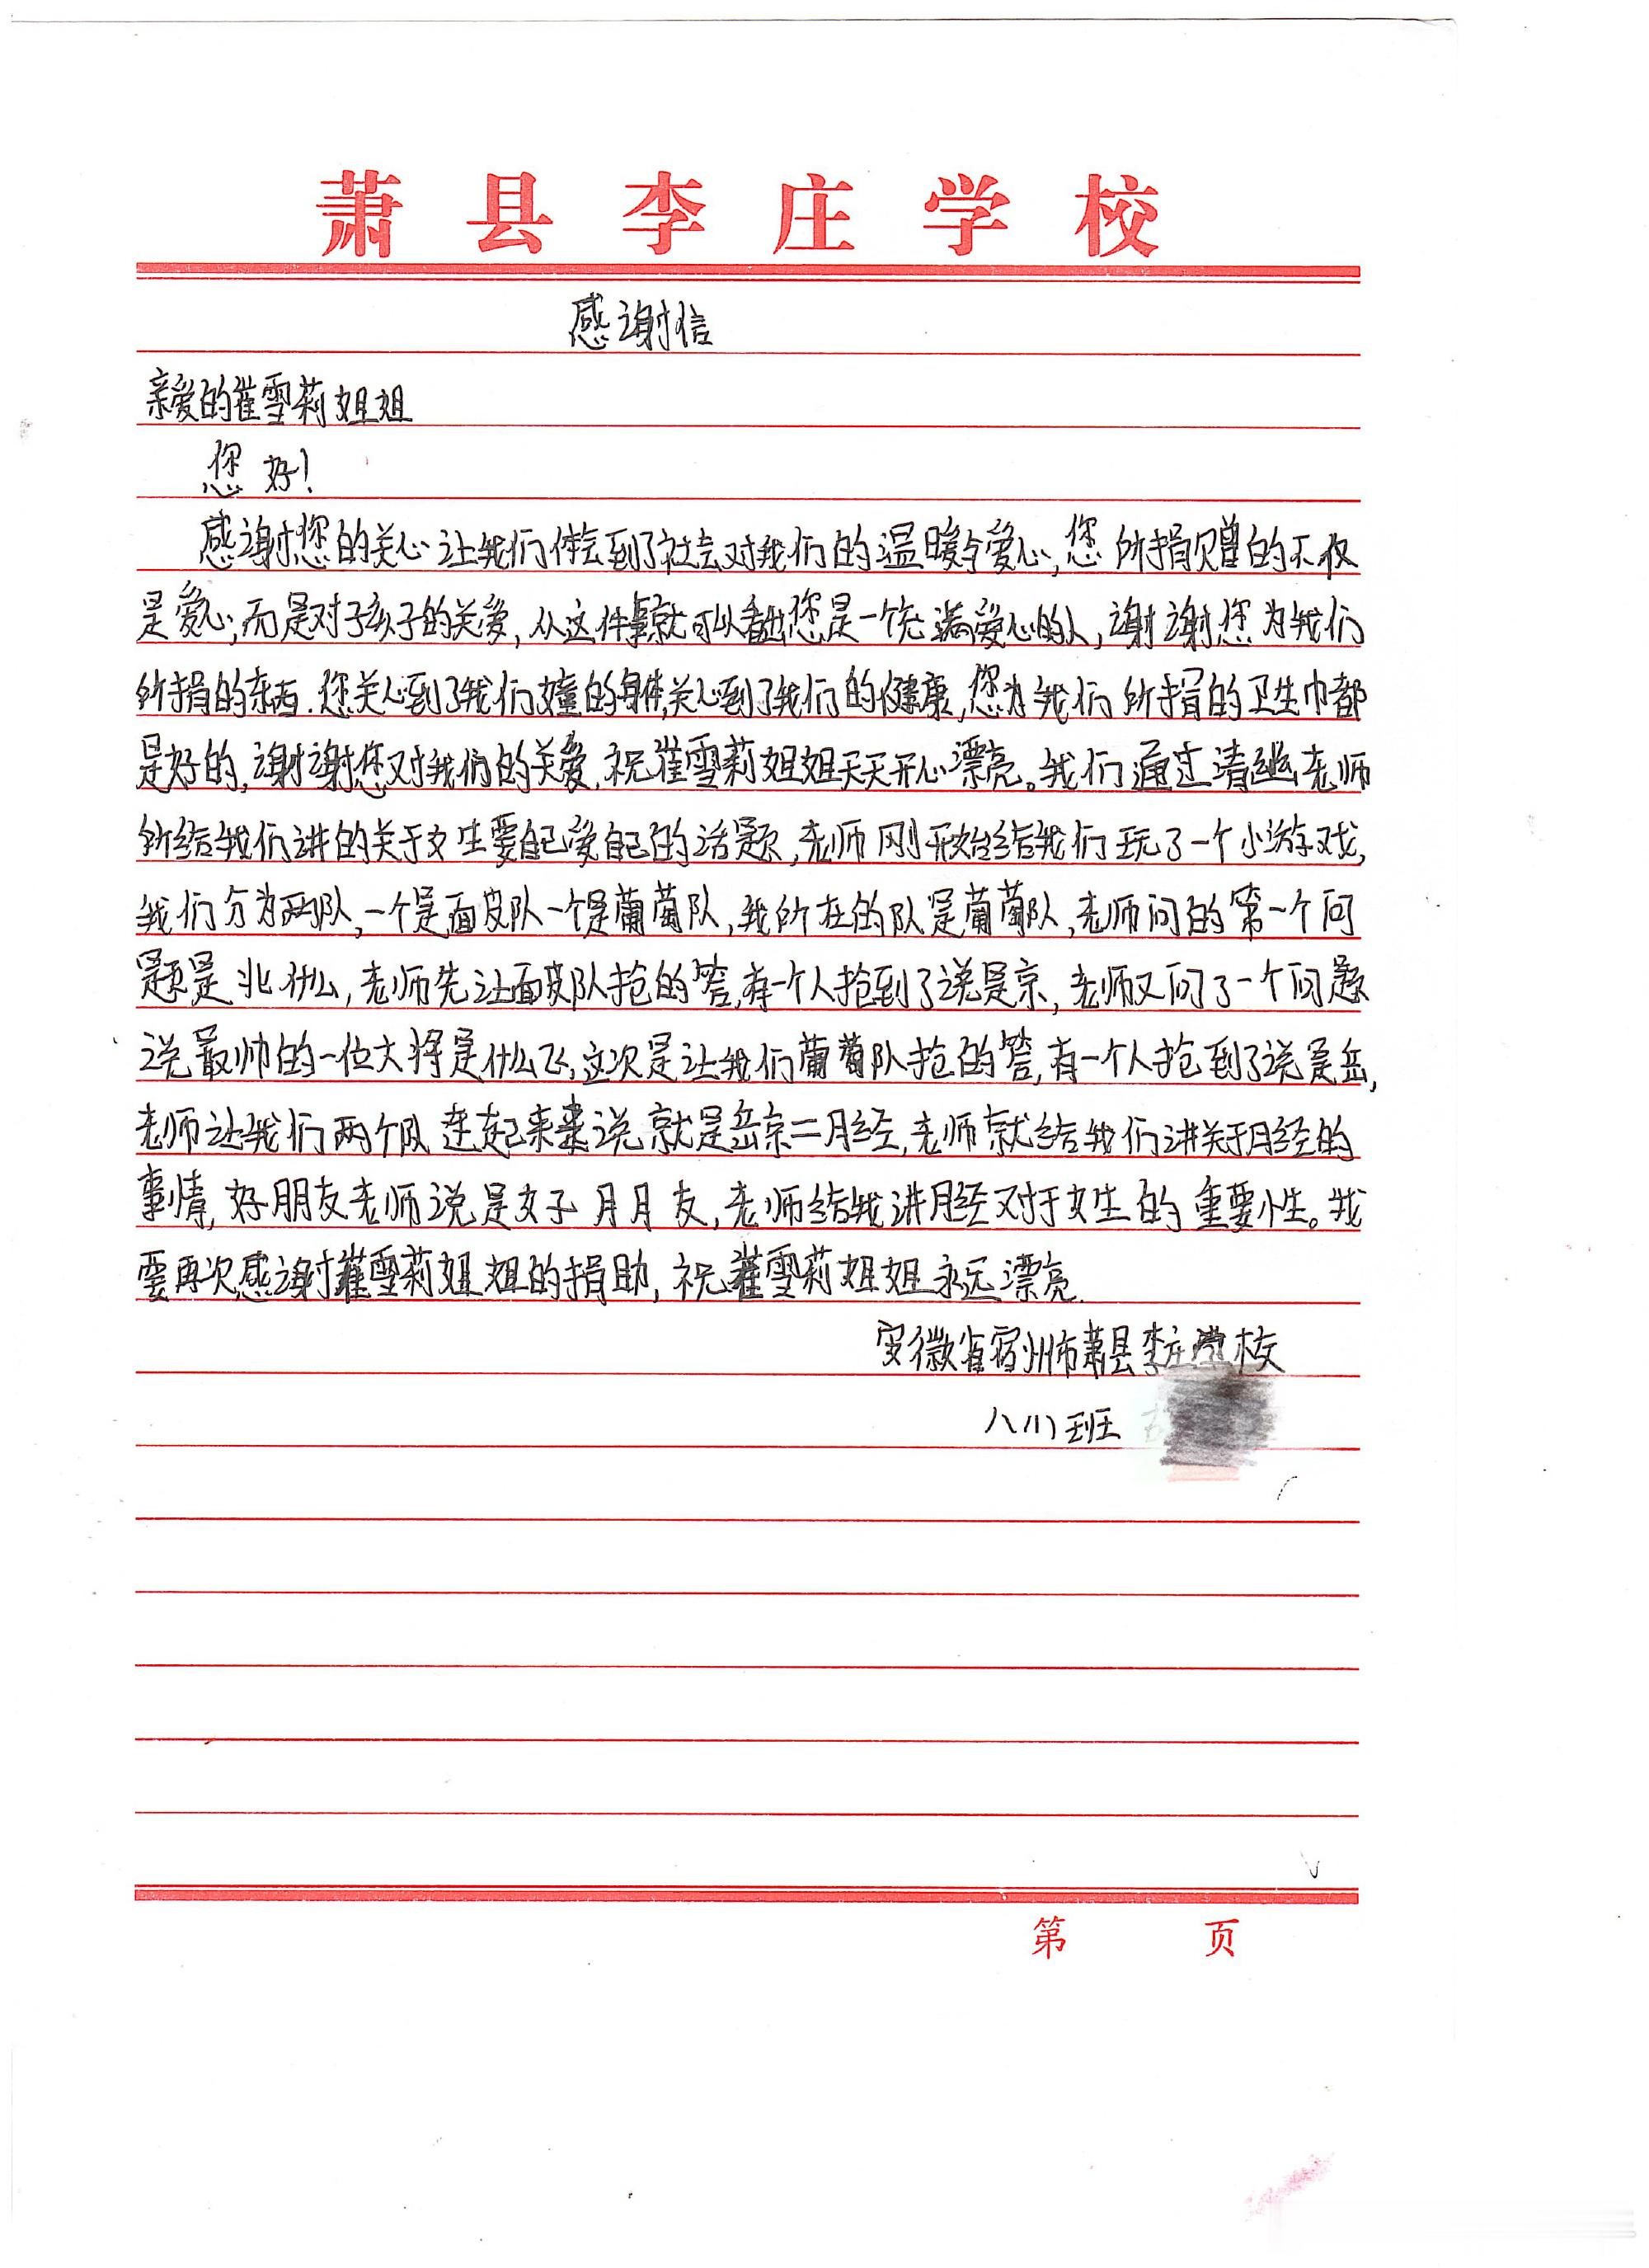 萧县李庄学校
感谢信
亲爱的崔雪莉姐姐
您好!
感谢您的关心让我们体会到了社会对我们的温暖与爱心,您所捐赠的不仅
是爱心,而是对孩子的关爱,从这件事就可以看出您是一个充满爱心的人,谢谢您为我们
所捐的东西.您关心到了我们女童的身体,关心到了我们的健康,您为我们所捐的卫生巾都
是好的,谢谢您对我们的关爱,祝崔雪莉姐姐天天开心漂亮。我们通过清老师
所给我们讲的关于女生要自己爱自己的话题,老师刚开始给我们玩了一个小游戏,
我们分为两队,一个是面皮队一个是葡萄队,我所在的队是葡萄队,老师问的第一个问
题是北什么,老师先让面皮队抢的答,有一个人抢到了说是京,老师又问了一个问题
说最帅的一位大将是什么飞,这次是让我们葡萄队抢的答,有一个人抢到了说是岳,
老师让我们两个队连起来说就是岳京二月经,老师就给我们讲关于月经的
事情,好朋友老师说是女子月月友,老师给我讲月经对于女生的重要性。我
要再次感谢崔雪莉姐姐的捐助,祝崔雪莉姐姐永远漂亮.
安徽省宿州市萧县李庄学校
八(1)班
第 页